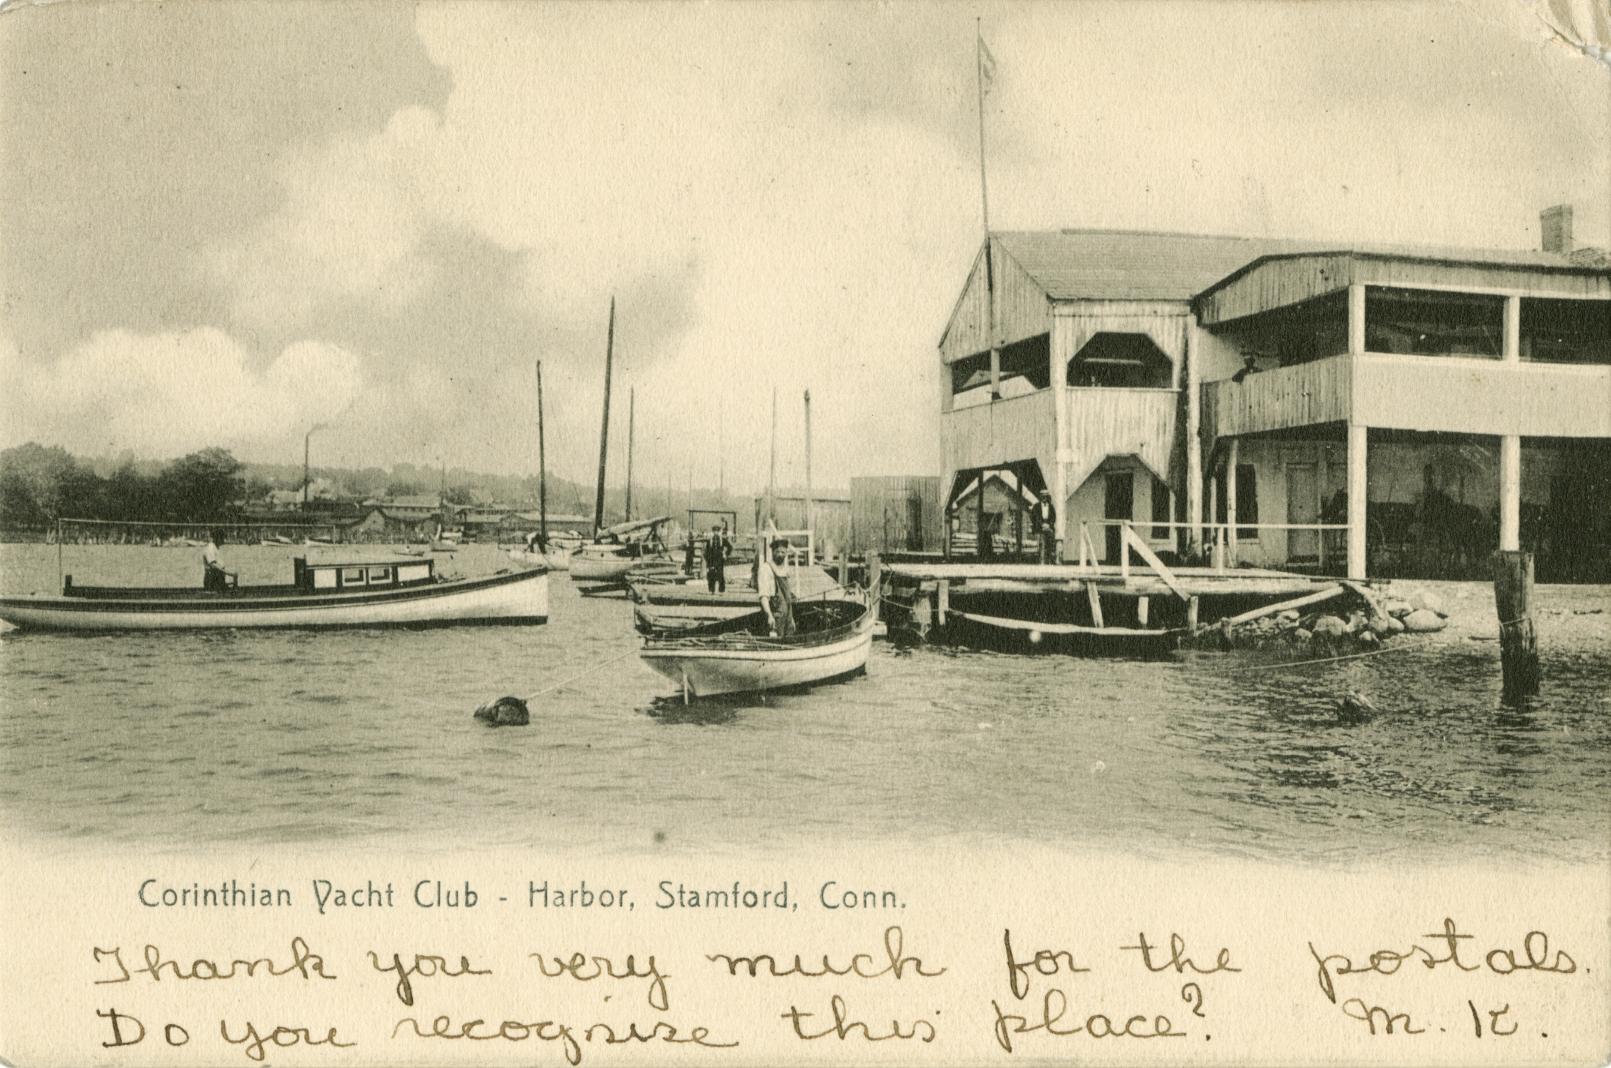 Corinthian Yacht Club - Harbor, Stamford, Conn.
Thank you very much for the postals.
Do you recognise this place? M. K.